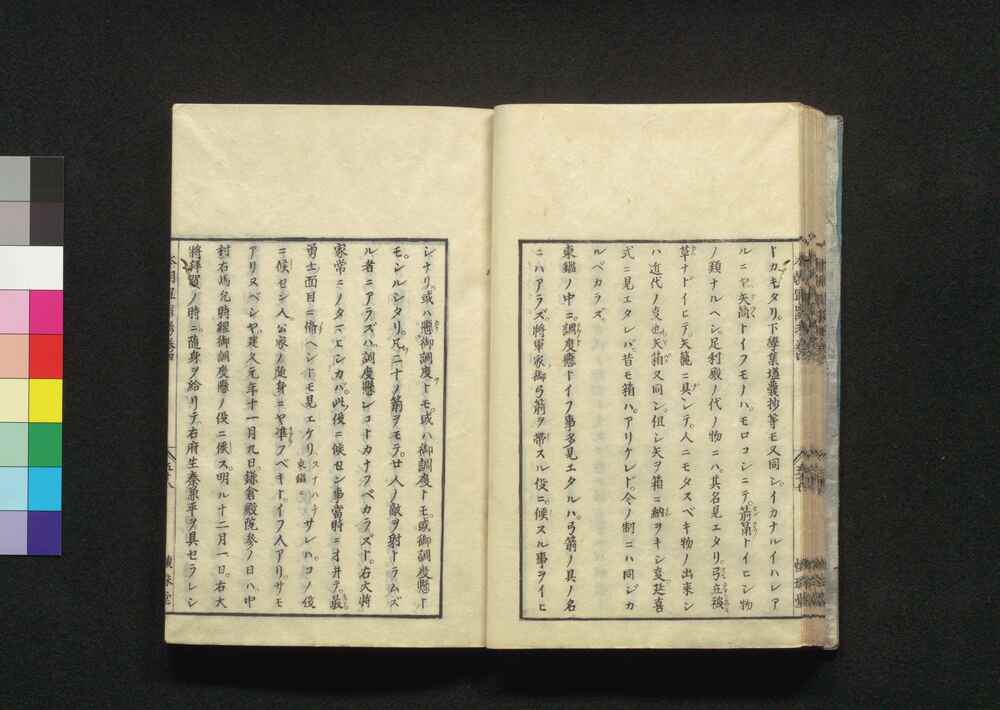 トカキタリ。下學集壒囊抄等モ又同シ。イカナルイハレア
ルニヤ。矢筒トイフモノハ。モロコシニテ。箭筩トイヒシ物
ノ類ナルヘシ。足利殿ノ代ノ物ニハ。其名見エタリ。弓立
草ナドイヒテ。矢籠ニ具シテ。人ニモタスベキ物ノ出來シ
ハ近代ノ変也。矢箱又同シ。但シ矢ヲ箱ニ納ヲキシ変。延喜
式ニ見エタレバ。昔モ箱ハ。アリケレド。今ノ制ニハ同ジカ
ルベカラズ。
東鑑ノ中ニ。調度懸トイフ事多見エタルハ。弓箭ノ具ノ名
ニハアラズ。將軍家御弓箭ヲ帶スル役ニ。候スル事ヲイヒ
シナリ。或ハ懸御調度トモ。或ハ御調度トモ。或御調度懸ト
モシルシタリ。凡二十ノ箭ヲモテ。廿人ノ敵ヲ射トラムズ
ル者ニアラズハ。調度懸シコトカナフベカラズト。右大將
家常ニノタマヒシカバ。此役ニ候セシ事。當時ニオ井テ。最
勇士面目ニ備ヘシトモ見エタリ。東鑑スナハチサレハコノ役
ニ候セシ人。公家ノ随身ニヤ。準フベキト。イフ人アリ。サモ
アリヌベシヤ。建久元年十一月九日。鎌倉殿院參ノ日ハ。中
村右馬允時經御調度懸ノ役ニ候ス。明ル十二月一日。右大
將拜賀ノ時ニ。随身ヲ給リテ。右府生秦兼平ヲ具セラレシ
五十八